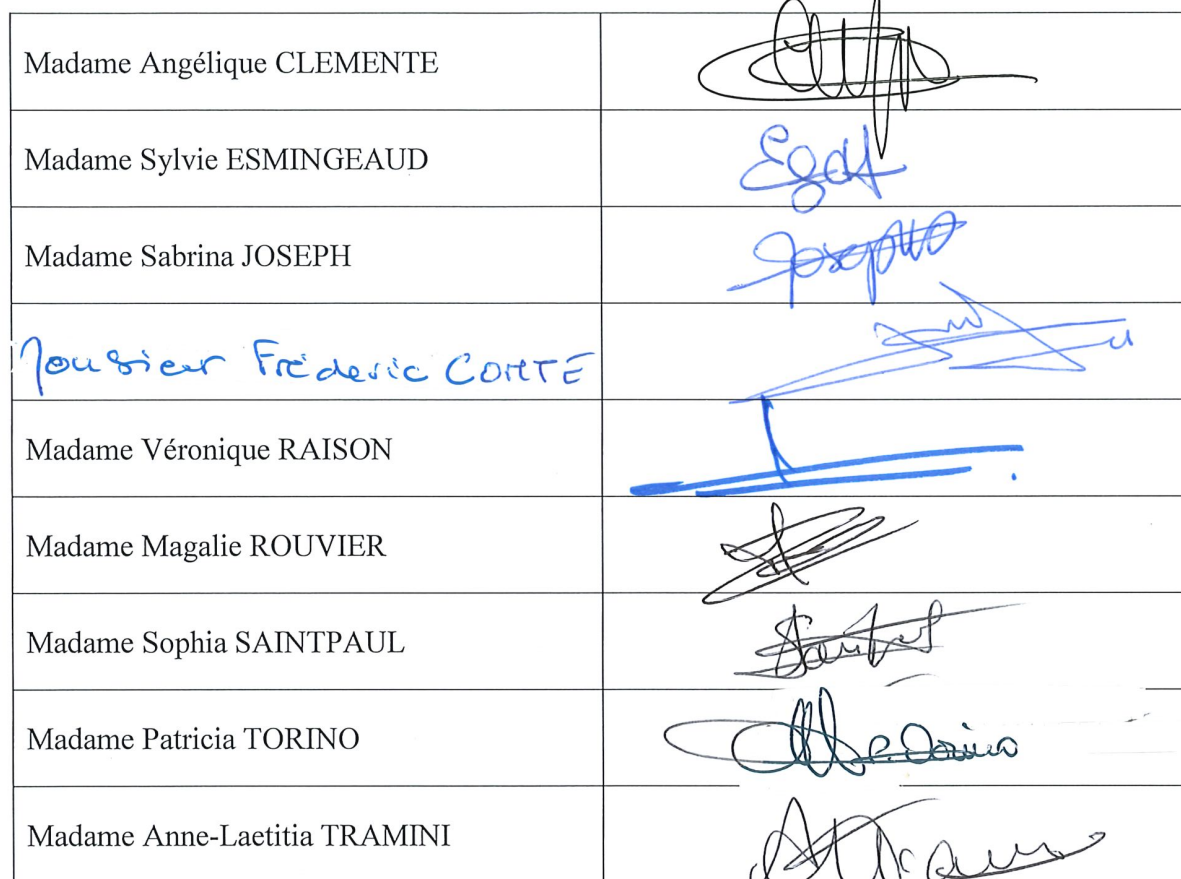 Madame Angélique CLEMENTE
Madame Sylvie ESMINGEAUD
Madame Sabrina JOSEPH
Joseph
Monsieur Fréderic COMTE
Madame Véronique RAISON
Madame Magalie ROUVIER
Madame Sophia SAINTPAUL
Madame Patricia TORINO
P. Torino
Madame Anne-Laetitia TRAMINI